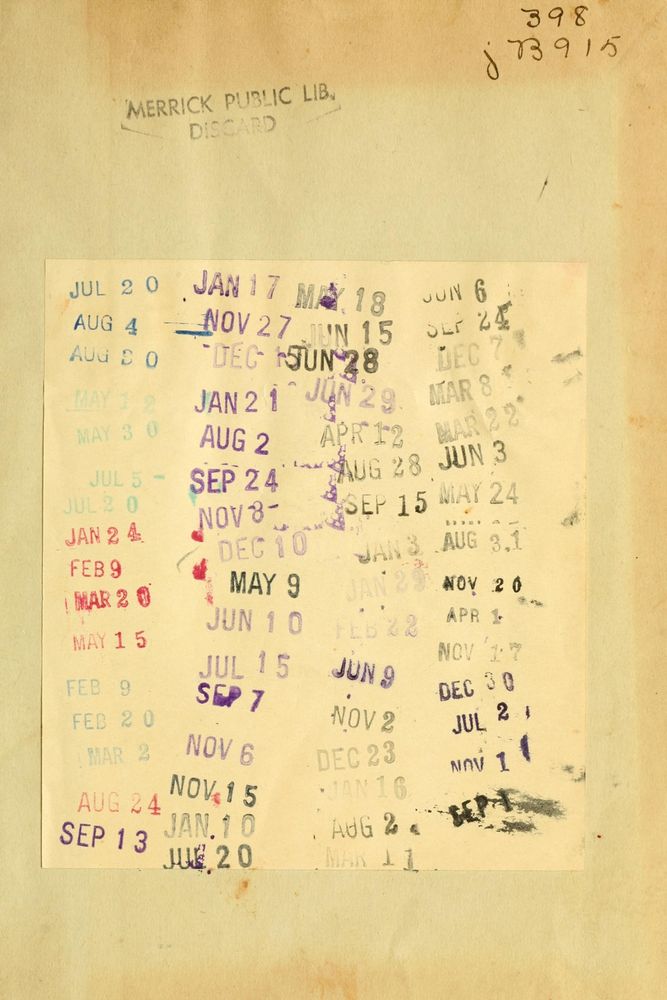 398
j B915
MERRICK PUBLIC LIB.
DISCARD
JUL 20
AUG 4
AUG 30
MAY 12
MAY 30
JUL 5
JUL 20
JAN 24
FEB 9
MAR 20
MAY 15
FEB 9
FEB 20
MAR 2
AUG 24
SEP 13
JAN 17
NOV 27
DEC
JAN 21
AUG 2
SEP 24
NOV 8
DEC 10
MAY 9
JUN 10
JUL 15
SEP 7
NOV 6
NOV. 15
JAN. 10
JUL 20
MAY 18
JUN 15
JUN 28
JUN 29
APR 12
AUG 28
SEP 15
JAN 3
JAN 29
FEB 22
JUN 9
NOV 2
DEC 23
JAN 16
AUG 2
MAR 11
JUN 6
SEP 24
DEC 7
MAR 8
MAR 22
JUN 3
MAY 24
AUG 31
NOV 20
APR
NOV 17
DEC 30
JUL 2
NOV 1
SEP